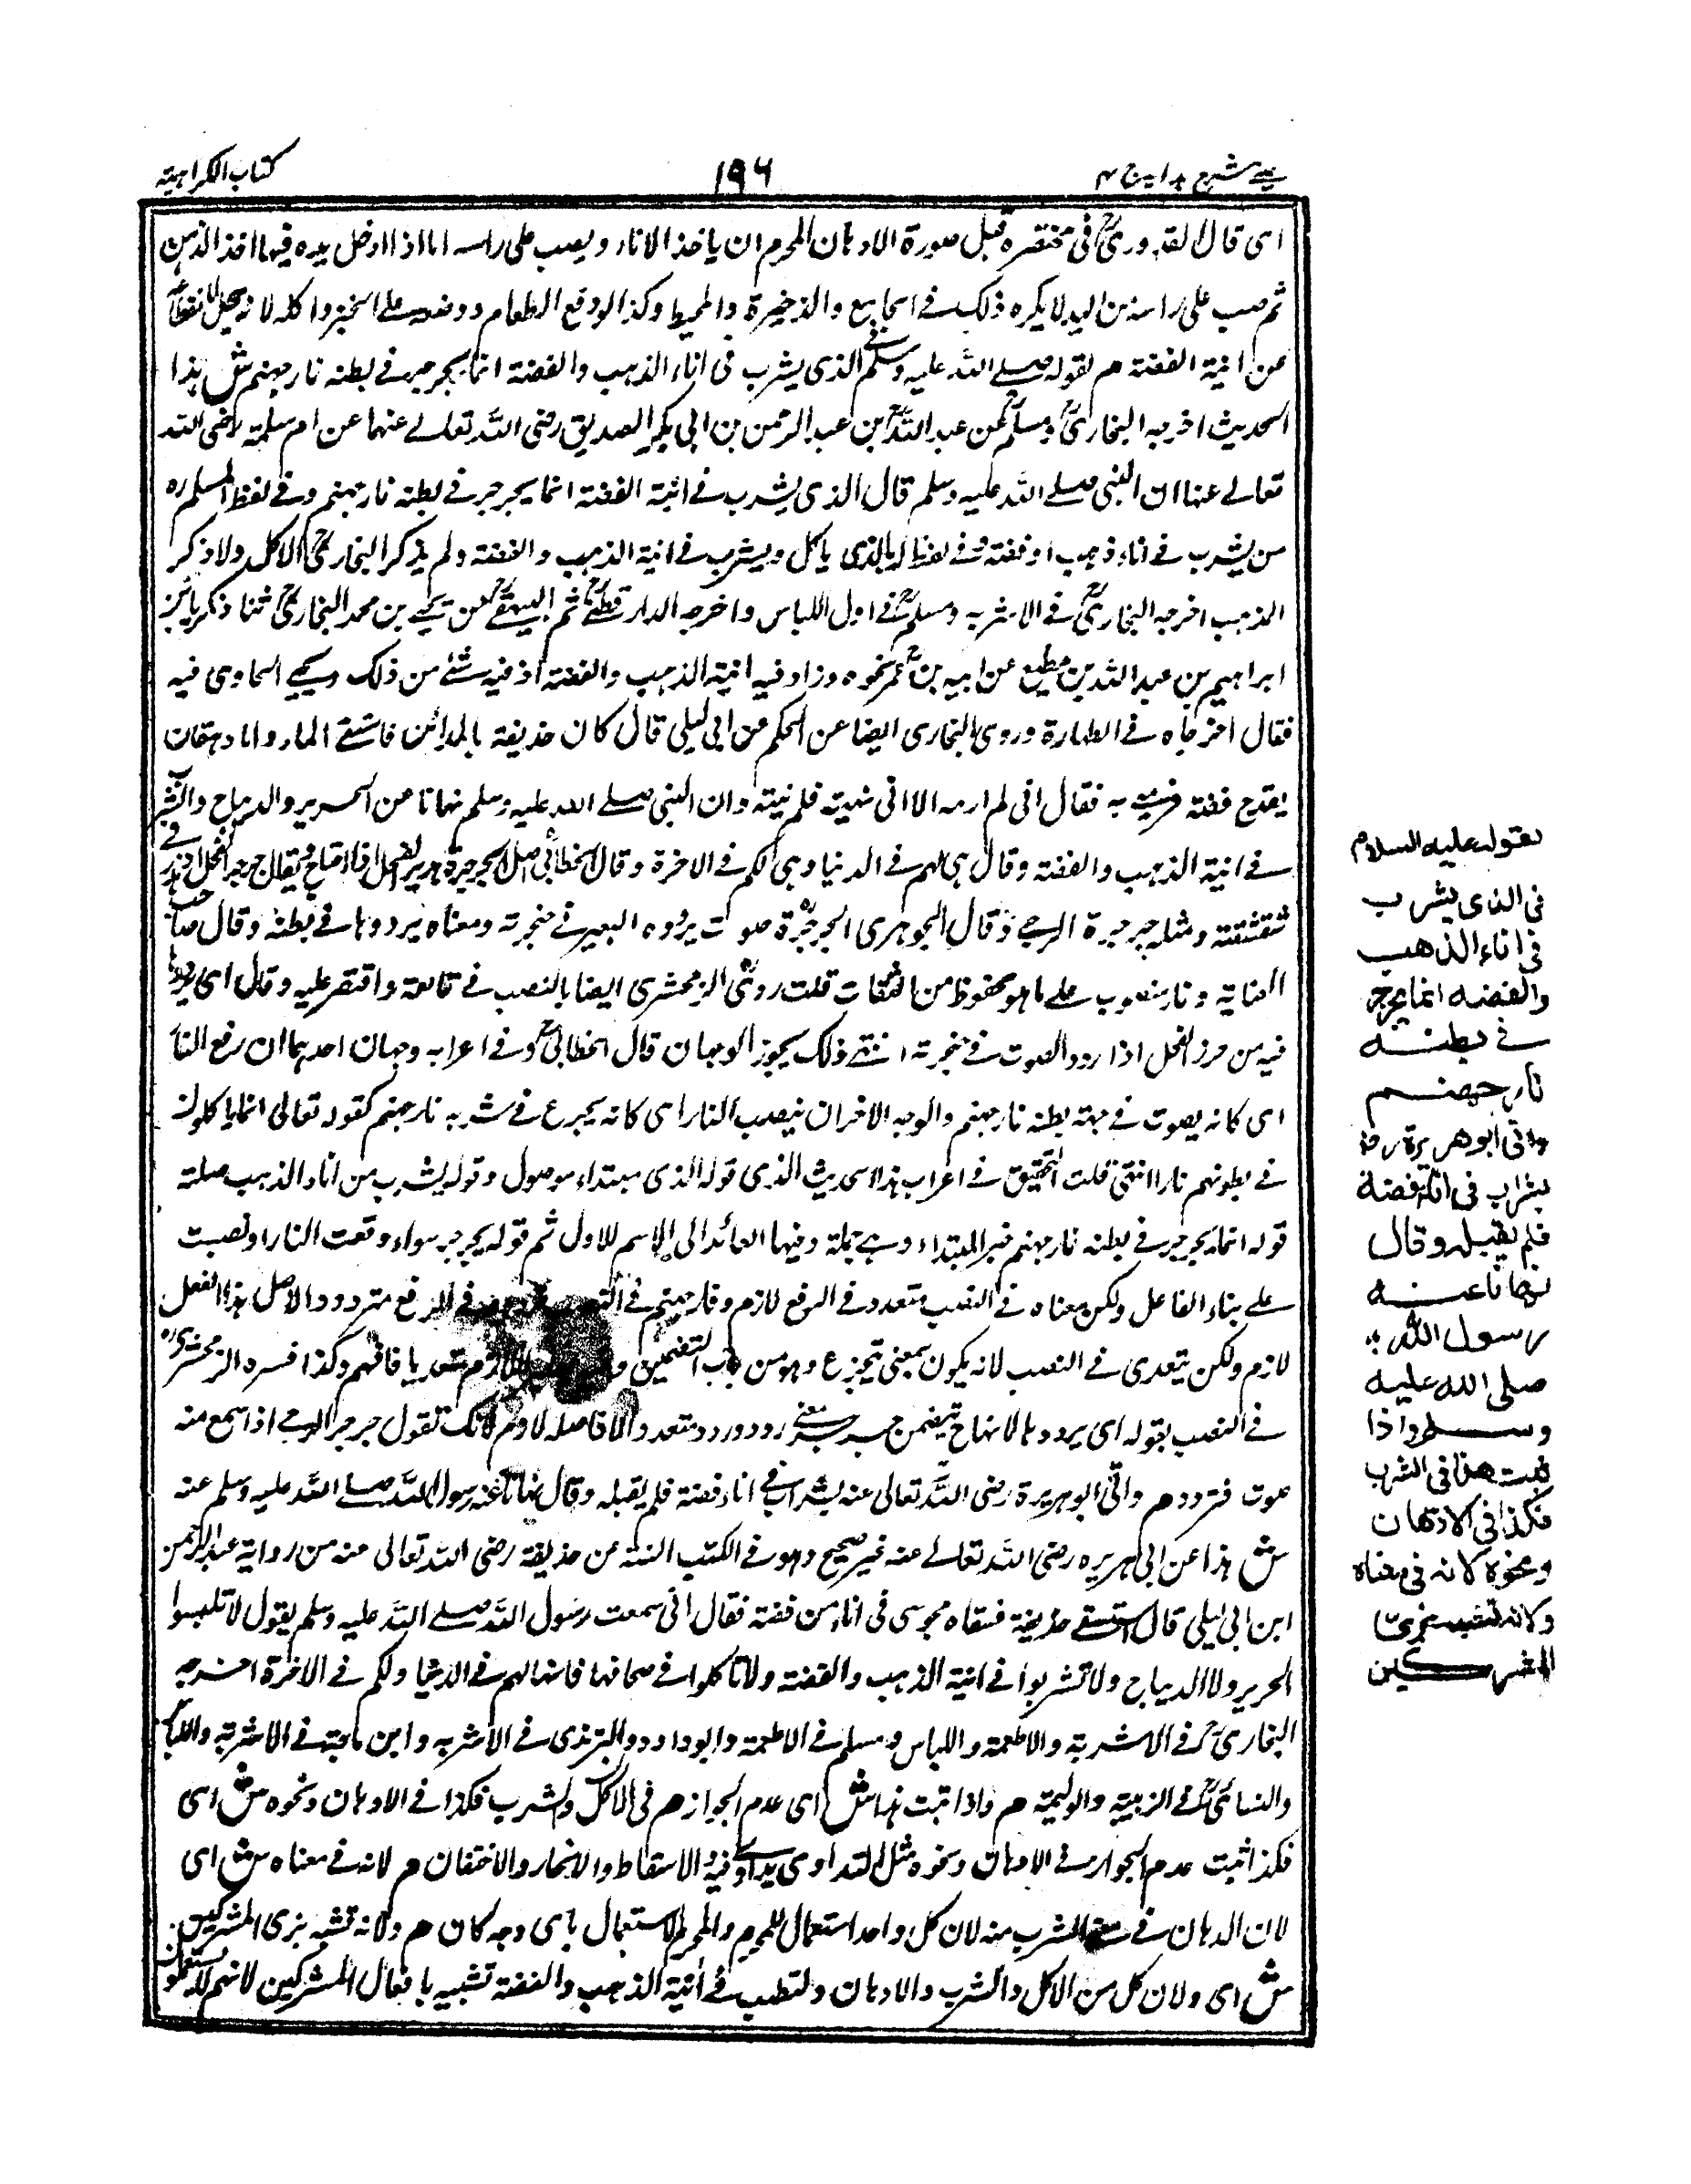 عيني شرح هداية ج ٤
١٩٦
كتاب الكراهية
اى قال القدوري في مختصره قيل صورة الادهان المحرم ان ياخذ الاناء ويصب على راسه اما اذا ادخل يده فيها اخذ الدهن
ثم صب على راسه من اليد لا يكره ذلك في الجامع والذخيرة والمحيط وكذا لو رفع الطعام ووضعه على الخبز واكله لانه
من انية الفضة م لقوله صلى الله عليه وسلم في الذى يشرب فى اناء الذهب والفضة انما يجرجر في بطنه نار جهنم ش هذا
الحديث اخرجه البخاري ومسلم عن عبد الله بن عبد الرحمن بن ابى بكر الصديق رضى الله تعالى عنهما عن ام سلمة رضى الله
تعالى عنها ان النبى صلى الله عليه وسلم قال الذى يشرب في انية الفضة انما يجرجر في بطنه نار جهنم وفي لفظ لمسلم
من يشرب في اناء ذهب او فضة وفي لفظ له الذى ياكل ويشرب في انية الذهب والفضة ولم يذكر البخاري الاكل ولا ذكر
الذهب اخرجه البخاري في الاشربه ومسلم في اول اللباس واخرجه الدارقطني ثم البيهقي عن يحيى بن محمد البخاري ثنا زكريا بن
ابراهيم بن عبد الله بن مطيع عن ابيه بن عمر نحوه وزاد فيه انية الذهب والفضة او فيه شئ من ذلك
فقال اخرجاه في الطهارة وروى البخارى ايضا عن الحكم عن ابى ليلى قال كان حذيفة بالمدائن فاستسقى الماء واتاه دهقان
بقدح فضة فرمى به فقال انى لم ارمه الا انى نهيته فلم ينته وان النبى صلى الله عليه وسلم نهانا عن الحرير والديباج والشرب
في انية الذهب والفضة وقال هى لهم في الدنيا وهى لكم في الاخرة وقال الخطابى اصل الجرجرة هدير الفحل اذا اهتاج يقال جرجر الفحل اذا هدر في
شقشقته ومثله جرجرة الرحى وقال الجوهرى الجرجرة صوت يردده البعير في حنجرته ومعناه يرددها في بطنه وقال صاحب
العناية ونار منصوب على ما هو محفوظ من الثقات قلت روى الزمخشرى ايضا بالنصب في فائقه واقتصر عليه وقال اى يرددها
فيه من جرجر الفحل اذا ردد الصوت في حنجرته انتهى ذلك يجوز الوجهان قال الخطابي وفي اعرابه وجهان احدهما ان رفع النار
اى كانه يصوت في جهة بطنه نار جهنم والوجه الاخر ان ينصب النار اى كانه يجرع في شربه نار جهنم كقوله تعالى انما ياكلون
في بطونهم نارا انتهى قلت التحقيق في اعراب هذا الحديث الذى قوله الذى مبتداء موصول وقوله يشرب من اناء الذهب صلته
قوله انما يجرجر في بطنه نار جهنم خبر المبتداء وهي جملة وفيها العائد الى الاسم الاول ثم قوله يجرجر سواء وقعت النار او نصبت
على بناء الفاعل ولكن معناه في النصب متعدد في الرفع لازم ونار جهنم في في الرفع متردد والاصل هذا الفعل
لازم ولكن يتعدى في النصب لانه يكون بمعنى يتجرع وهو من باب التضمين اللازم متعديا فافهم وكذا فسره الزمخشري
في النصب بقوله اى يرددها لانها يتضمن جرجر معنى ردد وردد متعد والا فاصله لازم لانك تقول جرجر الرحى اذا سمع منه
صوت فتردد م واتى ابو هريرة رضى الله تعالى عنه بشراب في اناء فضة فلم يقبله وقال نهانا عنه رسول الله صلى الله عليه وسلم عنه
ش هذا عن ابى هريره رضى الله تعالى عنه غير صحيح وهو في الكتب الستة عن حذيفة رضى الله تعالى عنه من رواية عبد الرحمن
ابن ابى ليلى قال استسقى حذيفة فسقاه مجوسى فى اناء من فضة فقال انى سمعت رسول الله صلى الله عليه وسلم يقول لا تلبسوا
الحرير ولا الديباج ولا تشربوا في انية الذهب والفضة ولا تاكلوا في صحافها فانها لهم في الدنيا ولكم في الاخرة اخرجه
البخاري في الاشربة والاطعمة واللباس ومسلم في الاطعمة وابو داود والترمذى في الاشربه وابن ماجة في الاشربة واللباس
والنسائي في الزينة والوليمة م واذا ثبت هذا ش اى عدم الجواز م فى الاكل والشرب فكذا في الادهان ونحوه ش اى
فكذا ثبت عدم الجواز في الادهان ونحوه مثل التداوى والاسقاط والانجار والاحتقان م لانه في معناه ش اى
لان الدهان في معنى الشرب منه لان كل واحد استعمال للمحرم والمحرم الاستعمال باى وجه كان م ولانه تشبه بزى المشركين
ش اى ولان كل من الاكل والشرب والادهان والتطيب في انية الذهب والفضة تشبيه بافعال المشركين لانهم يستعملون
لقوله عليه السلام
فى الذى يشرب
فى اناء الذهب
والفضه انما يجرجر
في بطنه
نار جهنم
واتى ابو هريرة رض
بشراب فى اناء فضة
فلم يقبله وقال
نهانا عنه
رسول الله
صلى الله عليه
وسلم واذا
ثبت هذا فى الشرب
فكذا فى الادهان
ونحوه لانه فى معناه
ولانه تشبه بزى
المشركين